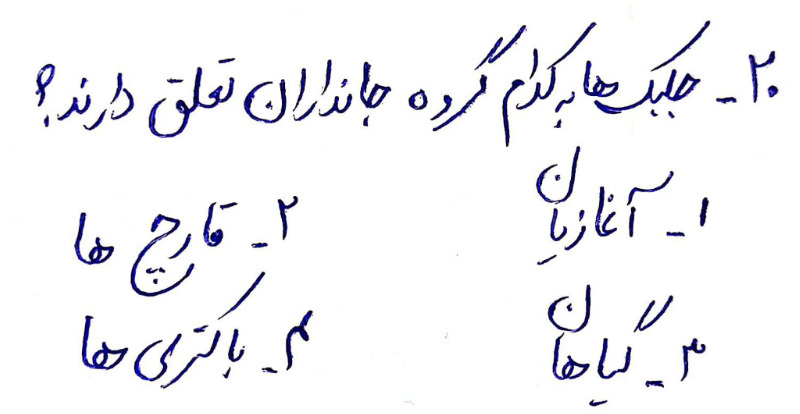 ۲۰- جلبک ها به کدام گروه جانداران تعلق دارند؟
۱- آغازیان ۲- قارچ ها
۳- گیاهان ۴- باکتری ها